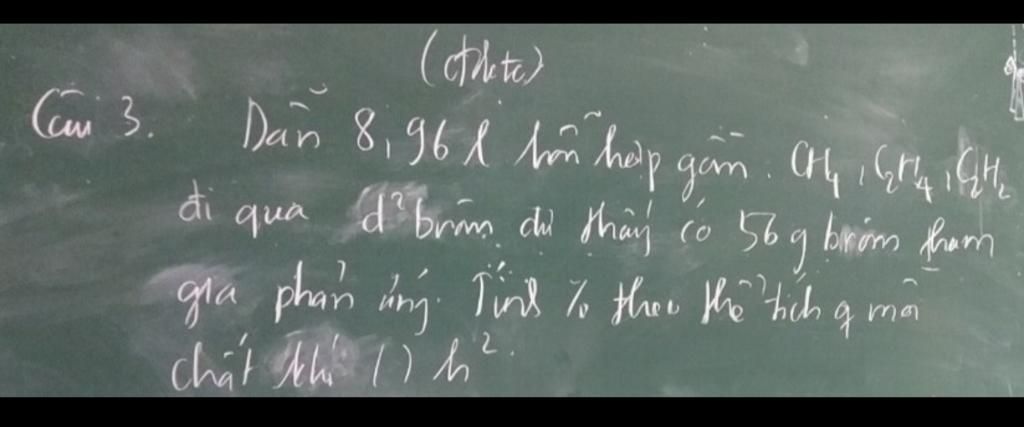 (đktc)
Câu 3. Dẫn 8,96 l hỗn hợp gồm. CH4, C2H4, C2H2
đi qua d² brôm dư thấy có 56 g brôm tham
gia phản ứng. Tính % theo thể tích q mỗi
chất khí () h².